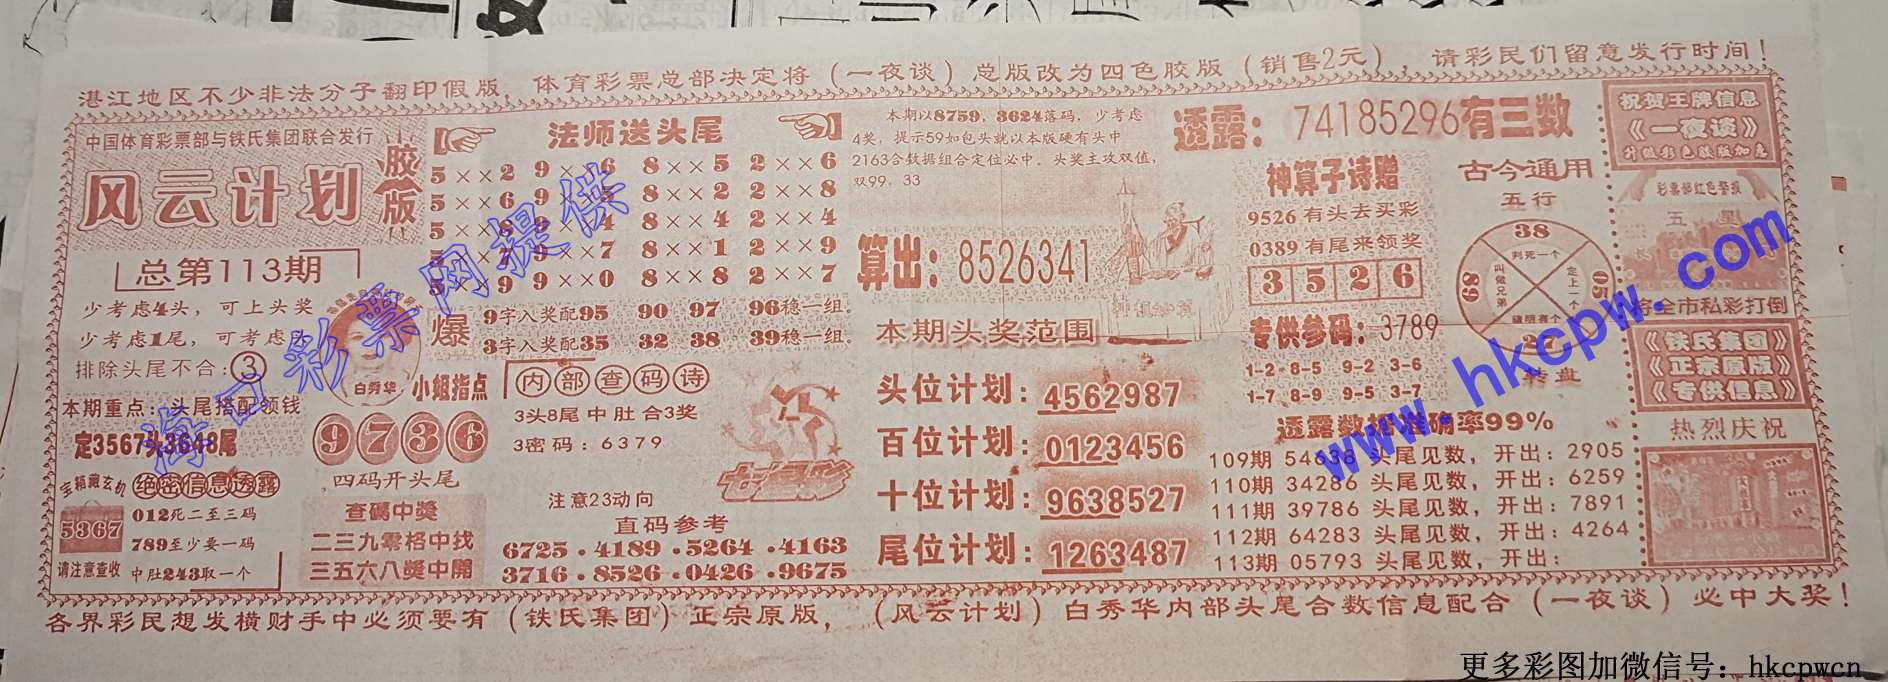 湛江地区不少非法分子翻印假版，体育彩票总部决定将（一夜谈）总版改为四色胶版（销售2元），请彩民们留意发行时间！
中国体育彩票部与铁氏集团联合发行
风云计划
胶版
总第113期
少考虑4头，可上头奖
少考虑1尾，可考虑
排除头尾不合：③
本期重点：头尾搭配领钱
定3567头3648尾
宝箱藏玄机
绝密信息透露
5367
012死二至三码
789至少要一码
请注意查收
中肚243取一个
法师送头尾
5××2 9××6 8××5 2××6
5××6 9××5 8××2 2××8
5××8 9××4 8××4 2××4
5××7 9××7 8××1 2××9
5××9 9××0 8××8 2××7
爆
9字入奖配95 90 97 96稳一组.
3字入奖配35 32 38 39稳一组.
白秀华
小姐指点
9736
四码开头尾
查碼中獎
二三九零格中找
三五六八獎中開
内部查码诗
3头8尾中肚合3奖
3密码：6379
七星彩
注意23动向
直码参考
6725.4189.5264.4163
3716.8526.0426.9675
本期以8759，3624落码，少考虑
4奖，提示59如包头就以本版硬有头中
2163合数据组合定位必中。头奖主攻双值，
双99，33
算出：8526341
本期头奖范围
头位计划：4562987
百位计划：0123456
十位计划：9638527
尾位计划：1263487
透露：74185296有三数
神算子诗赠
9526有头去买彩
0389有尾来领奖
3526
专供参码：3789
1-2 8-5 9-2 3-6
1-7 8-9 9-5 3-7
古今通用
五行
38
判死一个
05
定上一个
27
69
叫做兄弟
转盘
透露数据准确率99%
109期 54638 头尾见数，开出：2905
110期 34286 头尾见数，开出：6259
111期 39786 头尾见数，开出：7891
112期 64283 头尾见数，开出：4264
113期 05793 头尾见数，开出：
祝贺王牌信息
《一夜谈》
升级彩色胶版如意
彩票部红色警报
五星
将全市私彩打倒
《铁氏集团》
《正宗原版》
《专供信息》
热烈庆祝
各界彩民想发横财手中必须要有（铁氏集团）正宗原版，（风云计划）白秀华内部头尾合数信息配合（一夜谈）必中大奖！
海口彩票网提供
www.hkcpw.com
更多彩图加微信号：hkcpwcn